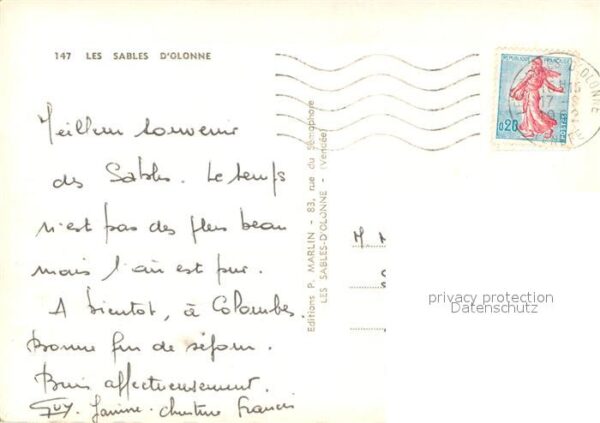 147 LES SABLES D'OLONNE
Meilleur souvenir
des Sables. Le temps
n'est pas des plus beau
mais l'air est pur.
A bientot, à Colombes.
Bonne fin de séjour.
Bien affectueusement.
Guy. Janine. Christine Francis
Editions P. MARLIN - 83, rue du Sémaphore
LES SABLES-D'OLONNE - (Vendée)
REPUBLIQUE FRANÇAISE
0,20
POSTES
D'OLONNE
M.
privacy protection
Datenschutz